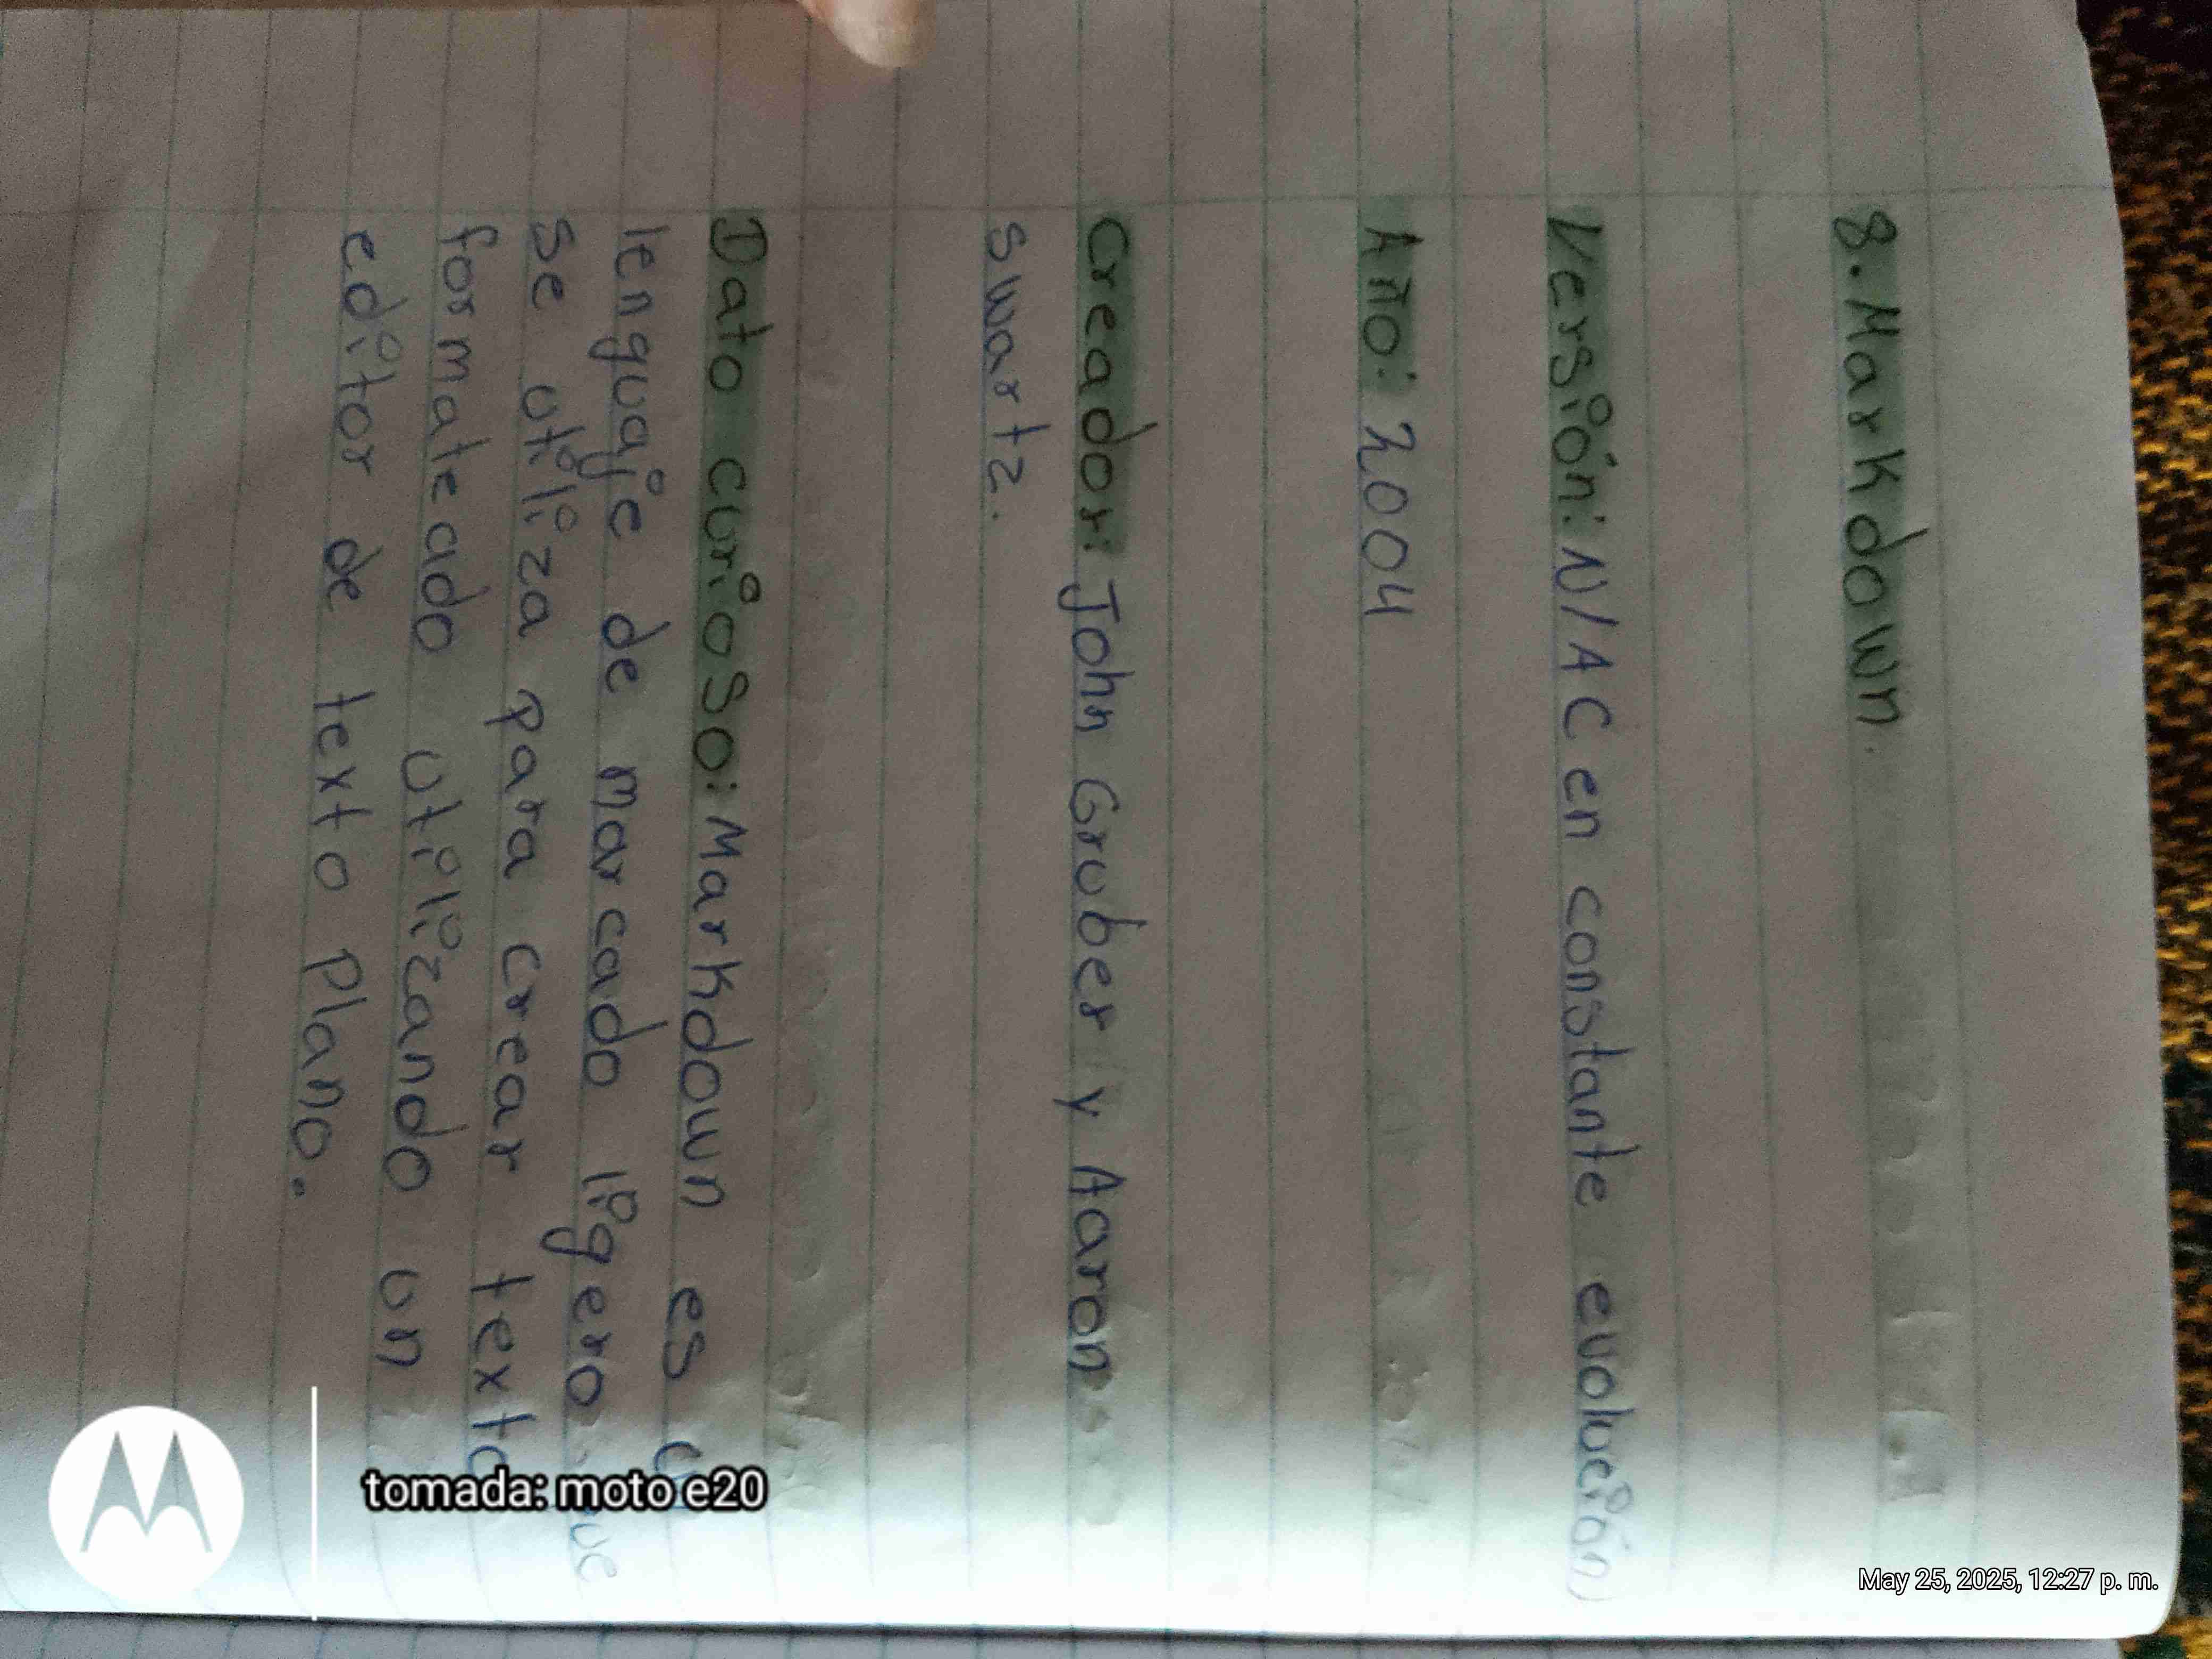 8. Markdown.
Versión: N/A C en constante evolución)
Año: 2004
Creador: John Gruber y Aaron
swartz.
Dato curioso: Markdown es
lenguaje de marcado ligero que
se utiliza para crear texto
formateado utilizando un
editor de texto plano.
tomada: moto e20
May 25, 2025, 12:27 p. m.